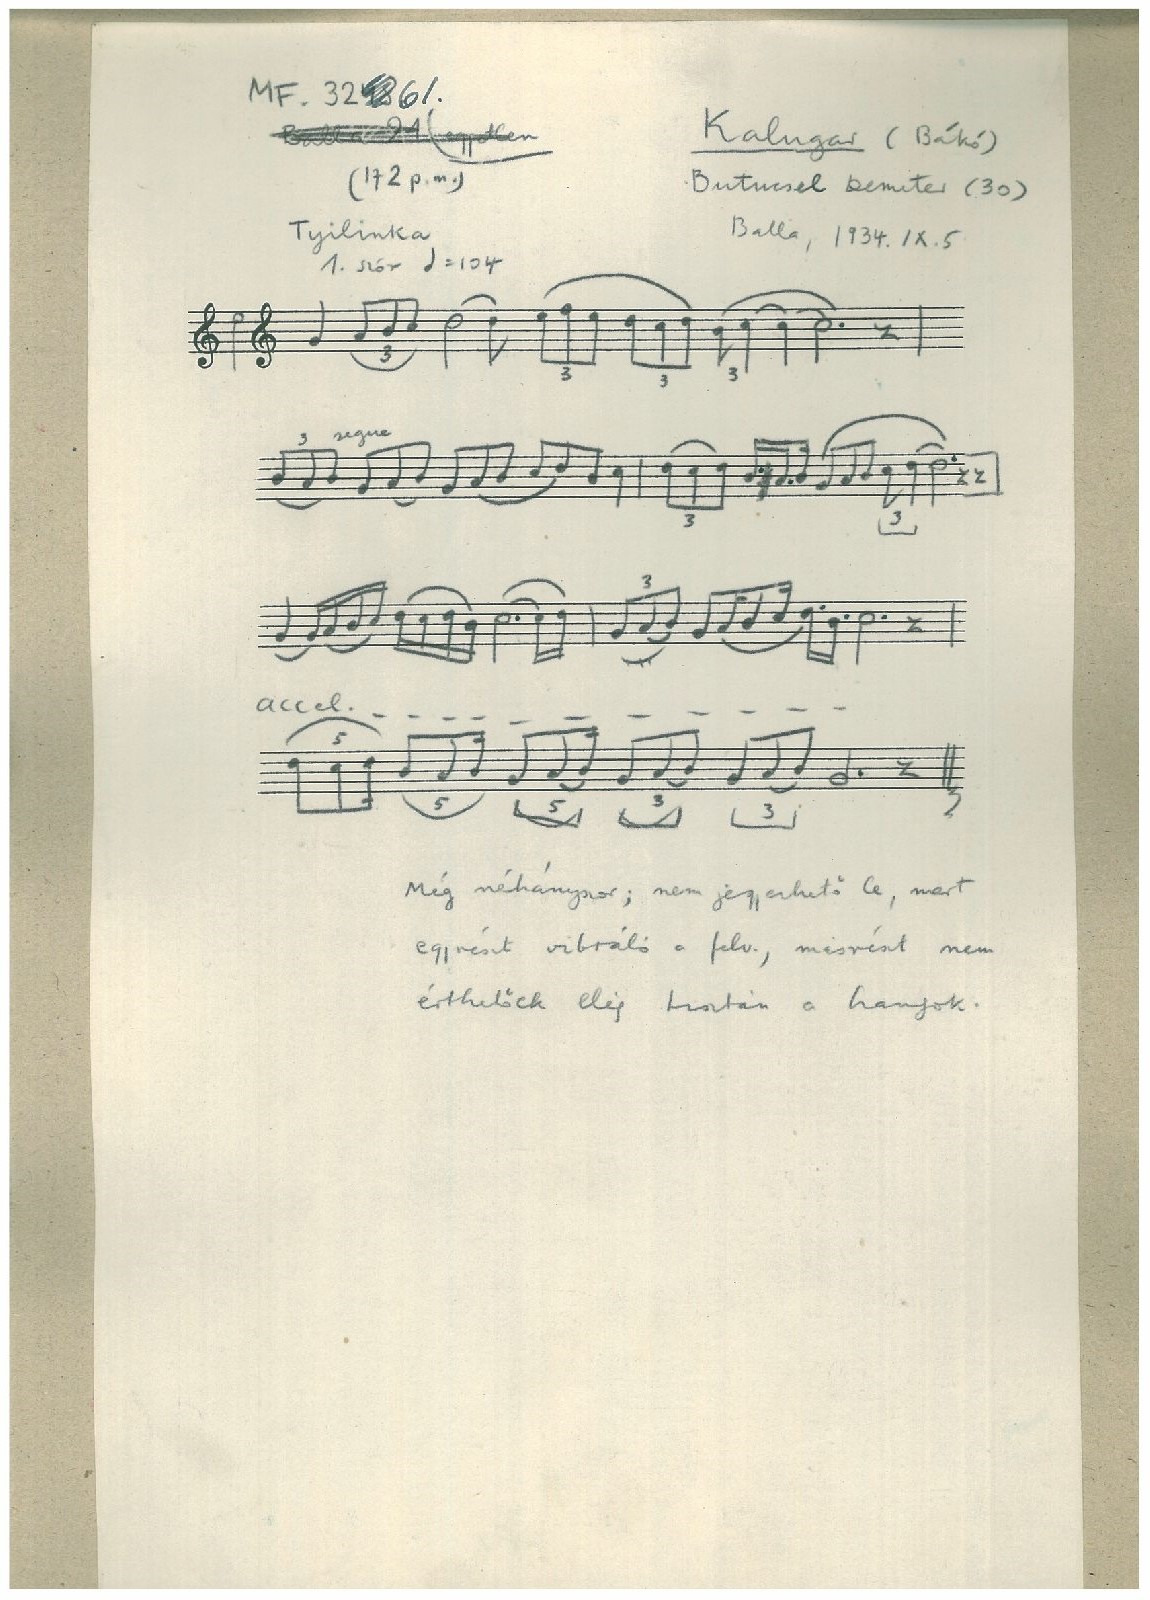 MF. 3261.
Balla 21 (egyetlen
(172 p.m.)
Kalugar (Bákó)
Butucsel Demiter (30)
Balla, 1934. IX. 5
Tyilinka
1. szór ♩=104
3
3
3
3
3 segue
3
3
3
accel. - - - - - - - - - -
5
5
5
3
3
Még néhányszor; nem jegyezhető le, mert
egyrészt vibráló a felv., másrészt nem
érthetőek elég tisztán a hangok.